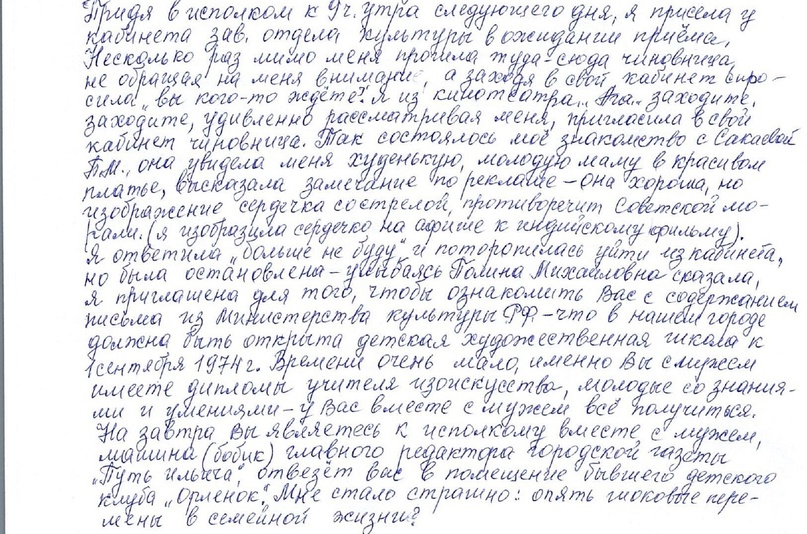 Придя в исполком к 9 ч. утра следующего дня, я присела у
кабинета зав. отдела культуры в ожидании приёма.
Несколько раз мимо меня прошла туда-сюда чиновница,
не обращая на меня внимание, а заходя в свой кабинет спро-
сила „вы кого-то ждёте? Я из кинотеатра... Ага... заходите,
заходите, удивленно рассматривая меня, пригласила в свой
кабинет чиновница. Так состоялось моё знакомство с Сакаевой
П.М., она увидела меня худенькую, молодую маму в красивом
платье, высказала замечание по рекламе – она хороша, но
изображение сердечка со стрелой, противоречит Советской мо-
рали. (я изобразила сердечко на афише к индийскому фильму).
Я ответила „больше не буду" и поторопилась уйти из кабинета,
но была остановлена – улыбаясь Полина Михайловна сказала,
я приглашена для того, чтобы ознакомить Вас с содержанием
письма из Министерства культуры РФ – что в нашем городе
должна быть открыта детская художественная школа к
1 сентября 1974 г. Времени очень мало, именно Вы с мужем
имеете дипломы учителя изоискусства, молодые со знания-
ми и умениями – у Вас вместе с мужем всё получиться.
На завтра Вы являетесь к исполкому вместе с мужем,
машина (бобик) главного редактора городской газеты
„Путь Ильича", отвезёт вас в помещение бывшего детского
клуба „Орленок". Мне стало страшно: опять шоковые пере-
мены в семейной жизни?